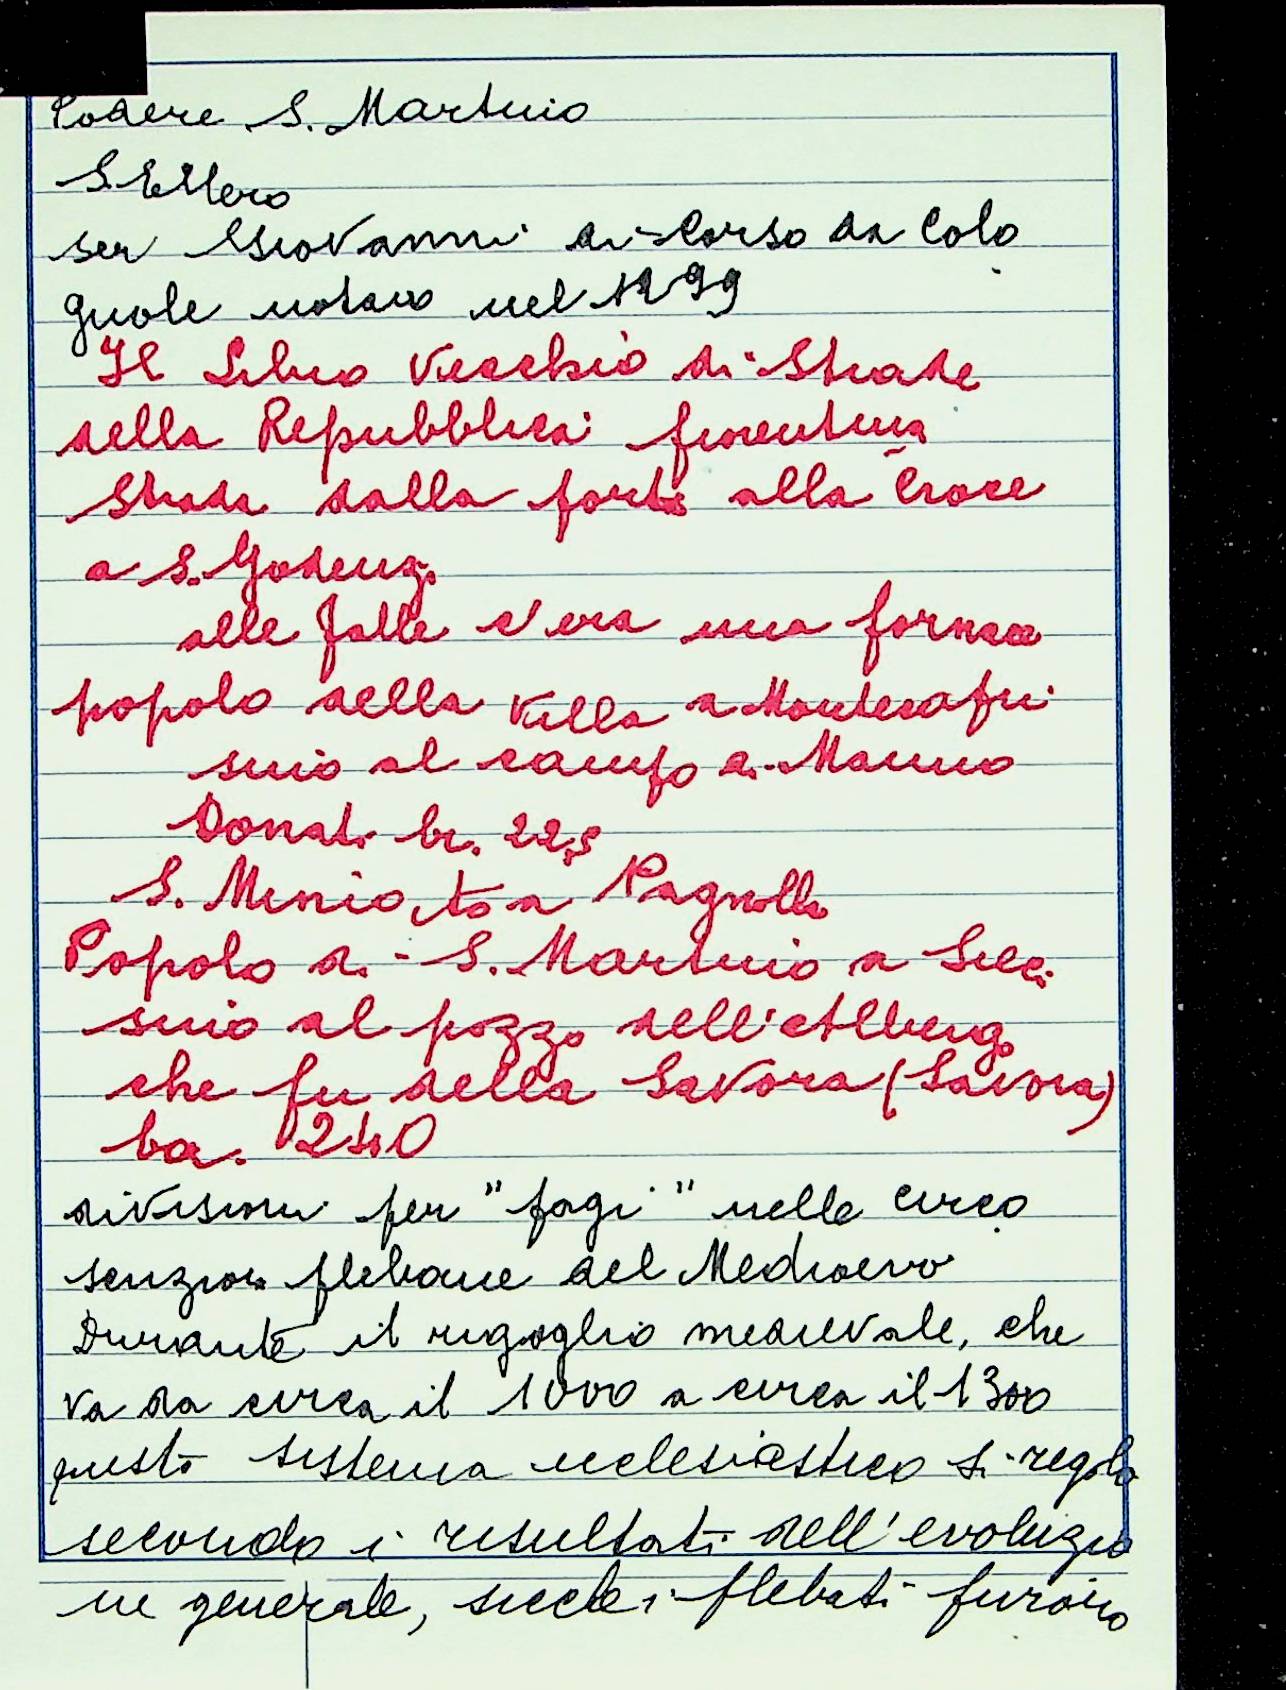 Podere S. Martino
S. Ellero
ser Giovanni di Corso da Colo
gnole notaio nel 1299
Il Libro Vecchio di Strade
della Repubblica fiorentina
Strada dalla porta alla Croce
a S. Godenzo
alle falle v'era una fornace
popolo della Villa a Montecafri
sino al campo di Manno
Donati br. 22,5
S. Miniato a Pagnolle
Popolo di S. Martino a Sieci
sino al pozzo dell'Albergo
che fu della Savora (Savoia)
ba. 240
divisioni per "pagi" nelle circo
scrizioni plebane del Medioevo
Durante il rigoglio medievale, che
va da circa il 1000 a circa il 1300
questo sistema ecclesiastico si regolò
secondo i risultati dell'evoluzio
ne generale, sicché i plebati furono